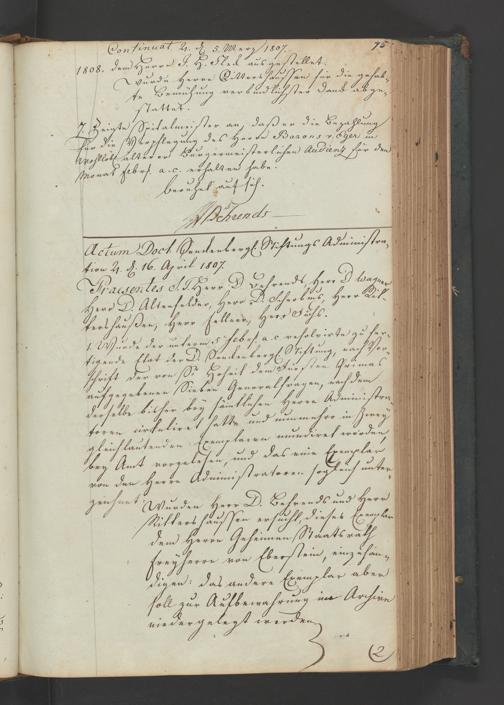 Continuat. 2. d. 5. Merz 1807.
75
1808. dem Herrn J. H. Fleck ausgestellet.
Wurde Herrn Rittershaussen für die gehab-
te Bemühung verbindlichster Dank abge-
stattet.
7. Zeigte Spitalmeister an, daß er die Bezahlung
für die Verpflegung des Herrn Barons v. in
älteren Bürgermeisterlichen Audienz für den
Monat Febr. a. c. erhalten habe.
beruhet auf sich.
Behrends
Actum Doct. Senckenbergl. Stiftungs Administra-
tion 2. d. 16. April 1807.
Praesentes S. T. Herr D. Behrends, Herr D. Wagner
Herr D. Altenfelder, Herr D. Scherbius, Herr Rit-
tershaußen, Herr Fellner, Herr
1. Wurde der unterm 5. Febr. a. c. resolvirte zu fer-
tigende Etat der D. Senckenbergl. Stiftung, nach Vor-
schrift der von Sr. Hoheit dem Fürsten Primas
aufgegebenen Sieben Generalfragen, nachdem
derselbe bisher bey sämtlichen Herrn Administra-
toren circuliret hatte und nunmehro in Zwey
gleichlautenden Exemplaren mundiret worden,
bey Amt vorgelesen, und das eine Exemplar
von den Herrn Administratoren sogleich unter-
zeichnet.
Wurden Herr D. Behrends und Herr
Rittershaussen ersucht, dieses Exemplar
dem Herrn Geheimen Staatsrath
Freyherrn von Eberstein, einzuhän-
digen: das andere Exemplar aber
soll zur Aufbewahrung im Archive
niedergelegt werden
2